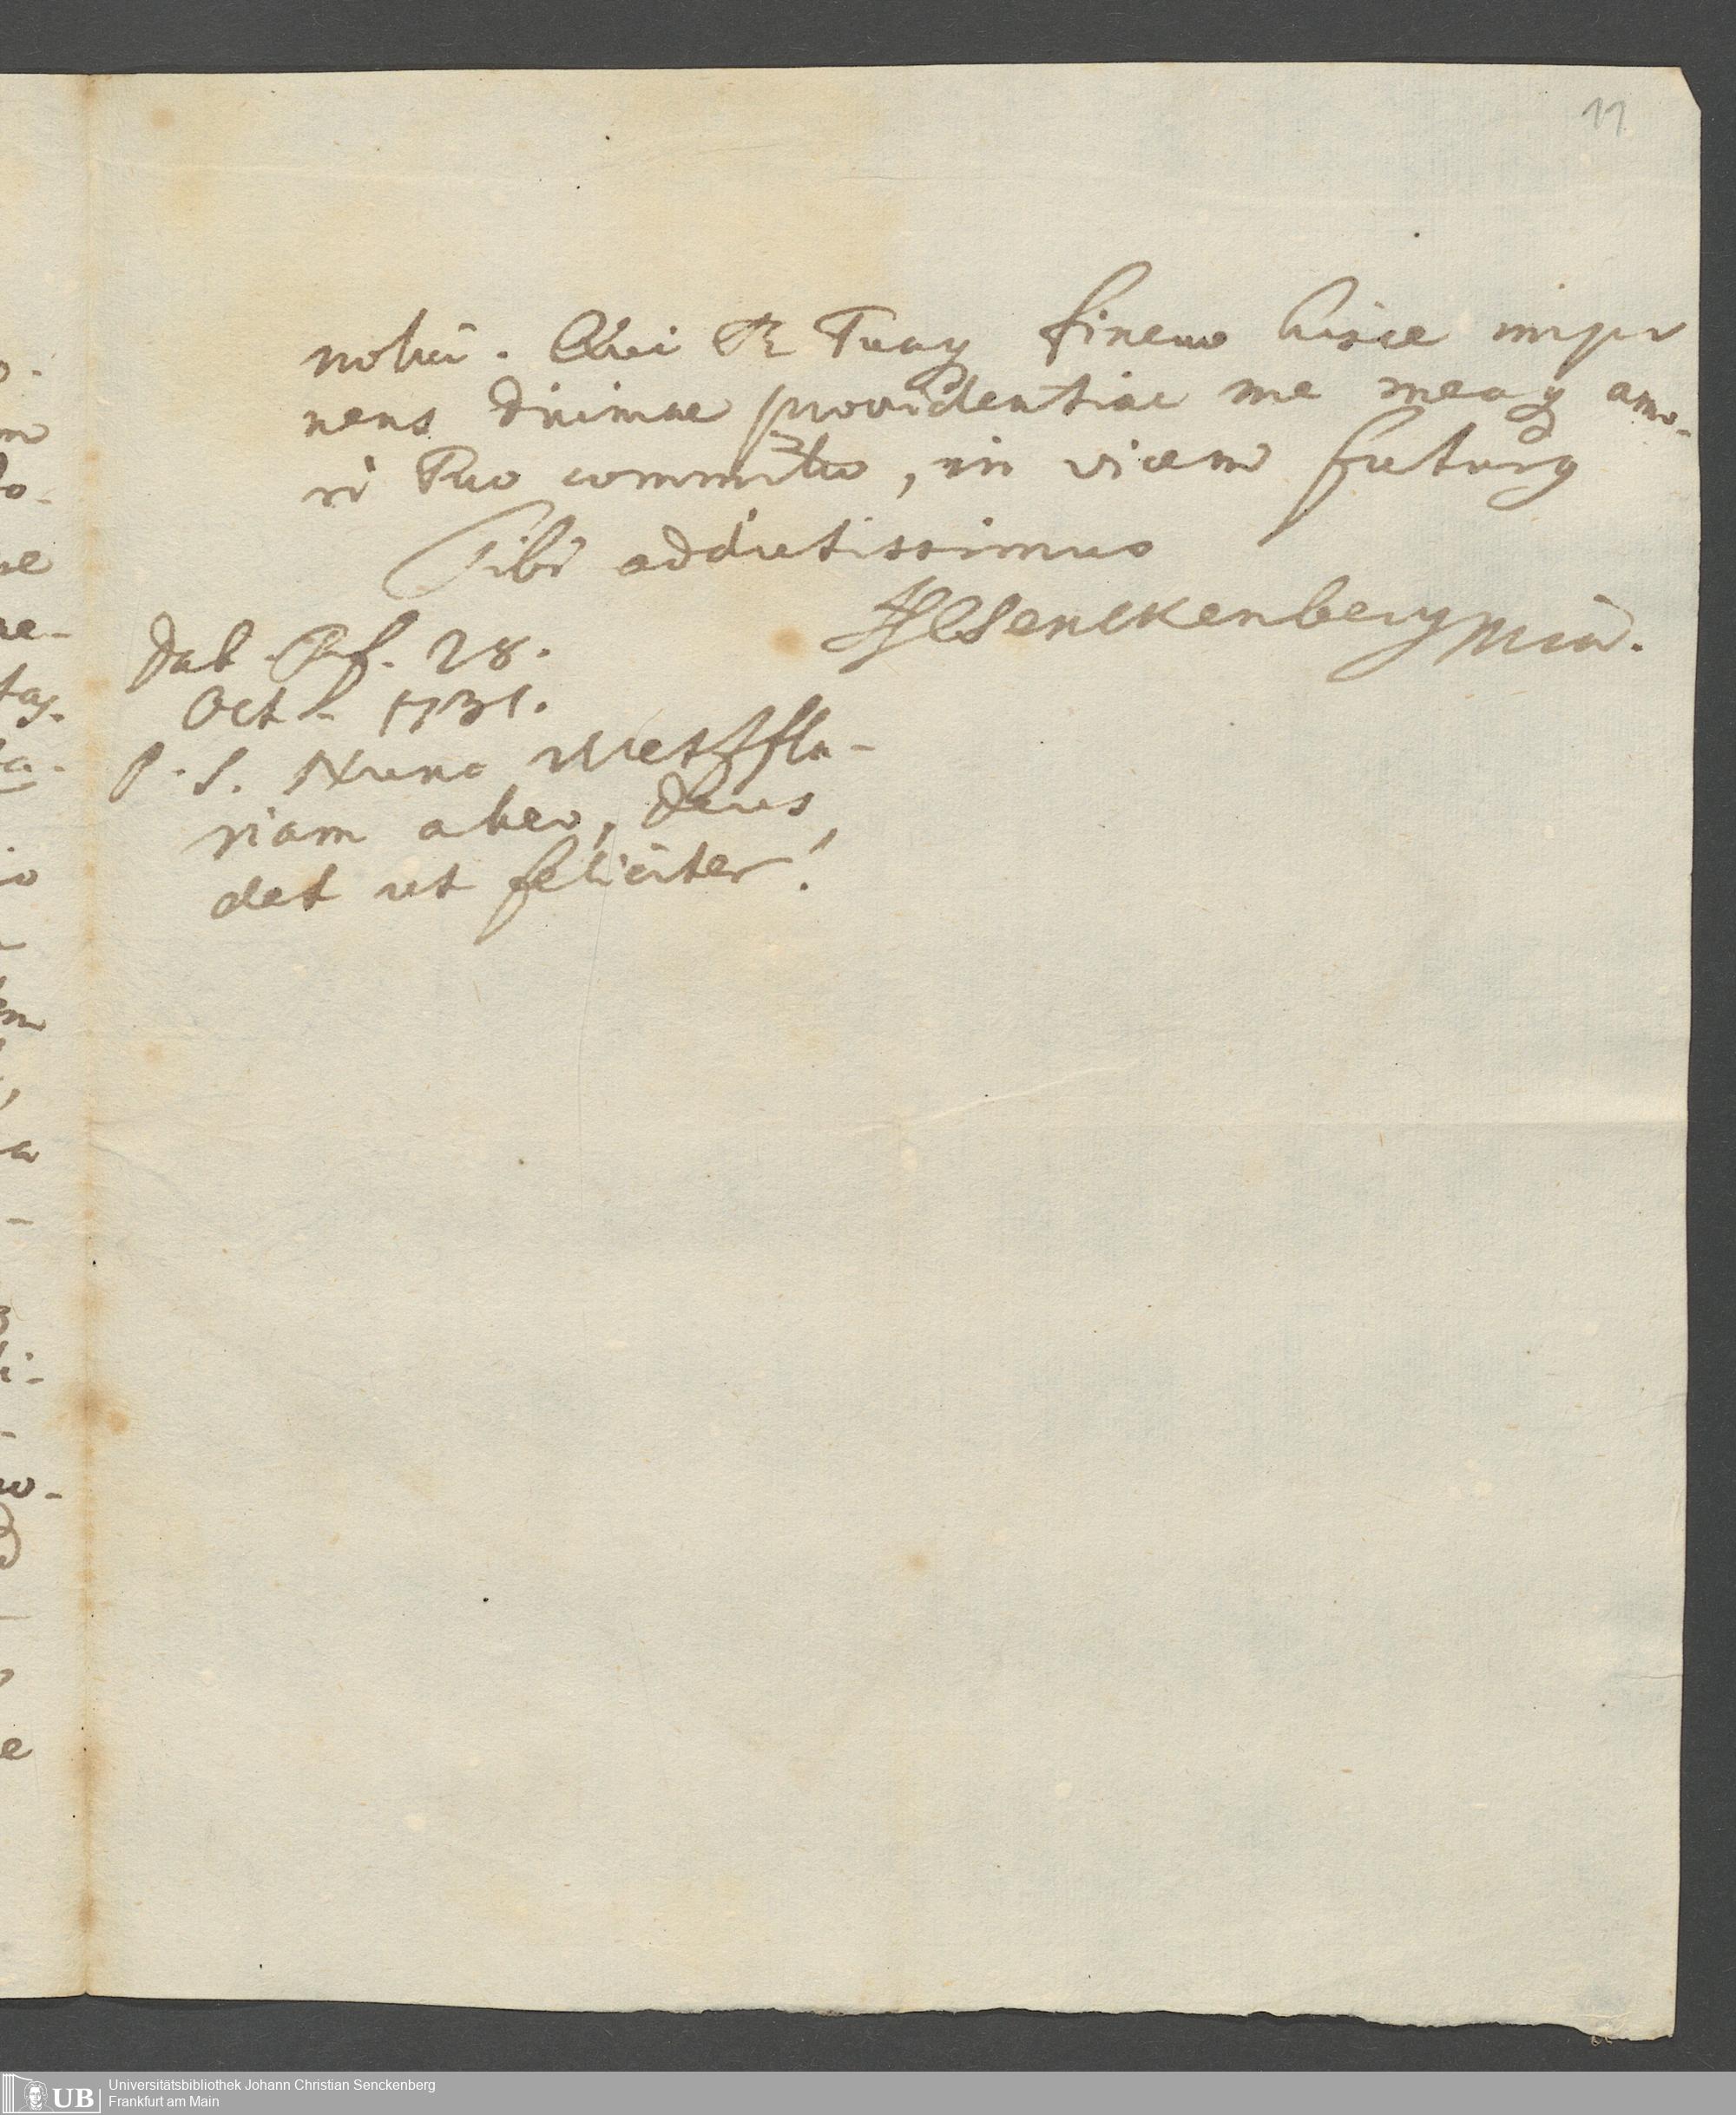 11
nolui. Qui Te Tuaq finem hisce impo
nens divinae providentiae me meaq amo-
ri Tuo committo, in vicem futurq
Tibi addictissimus
HCSenckenberg mia.
Dab. Ff. 28.
Octb. 1731.
P. S. Nunc Wetzfla-
riam abeo, Deus
det ut feliciter!
UB
Universitätsbibliothek Johann Christian Senckenberg
Frankfurt am Main